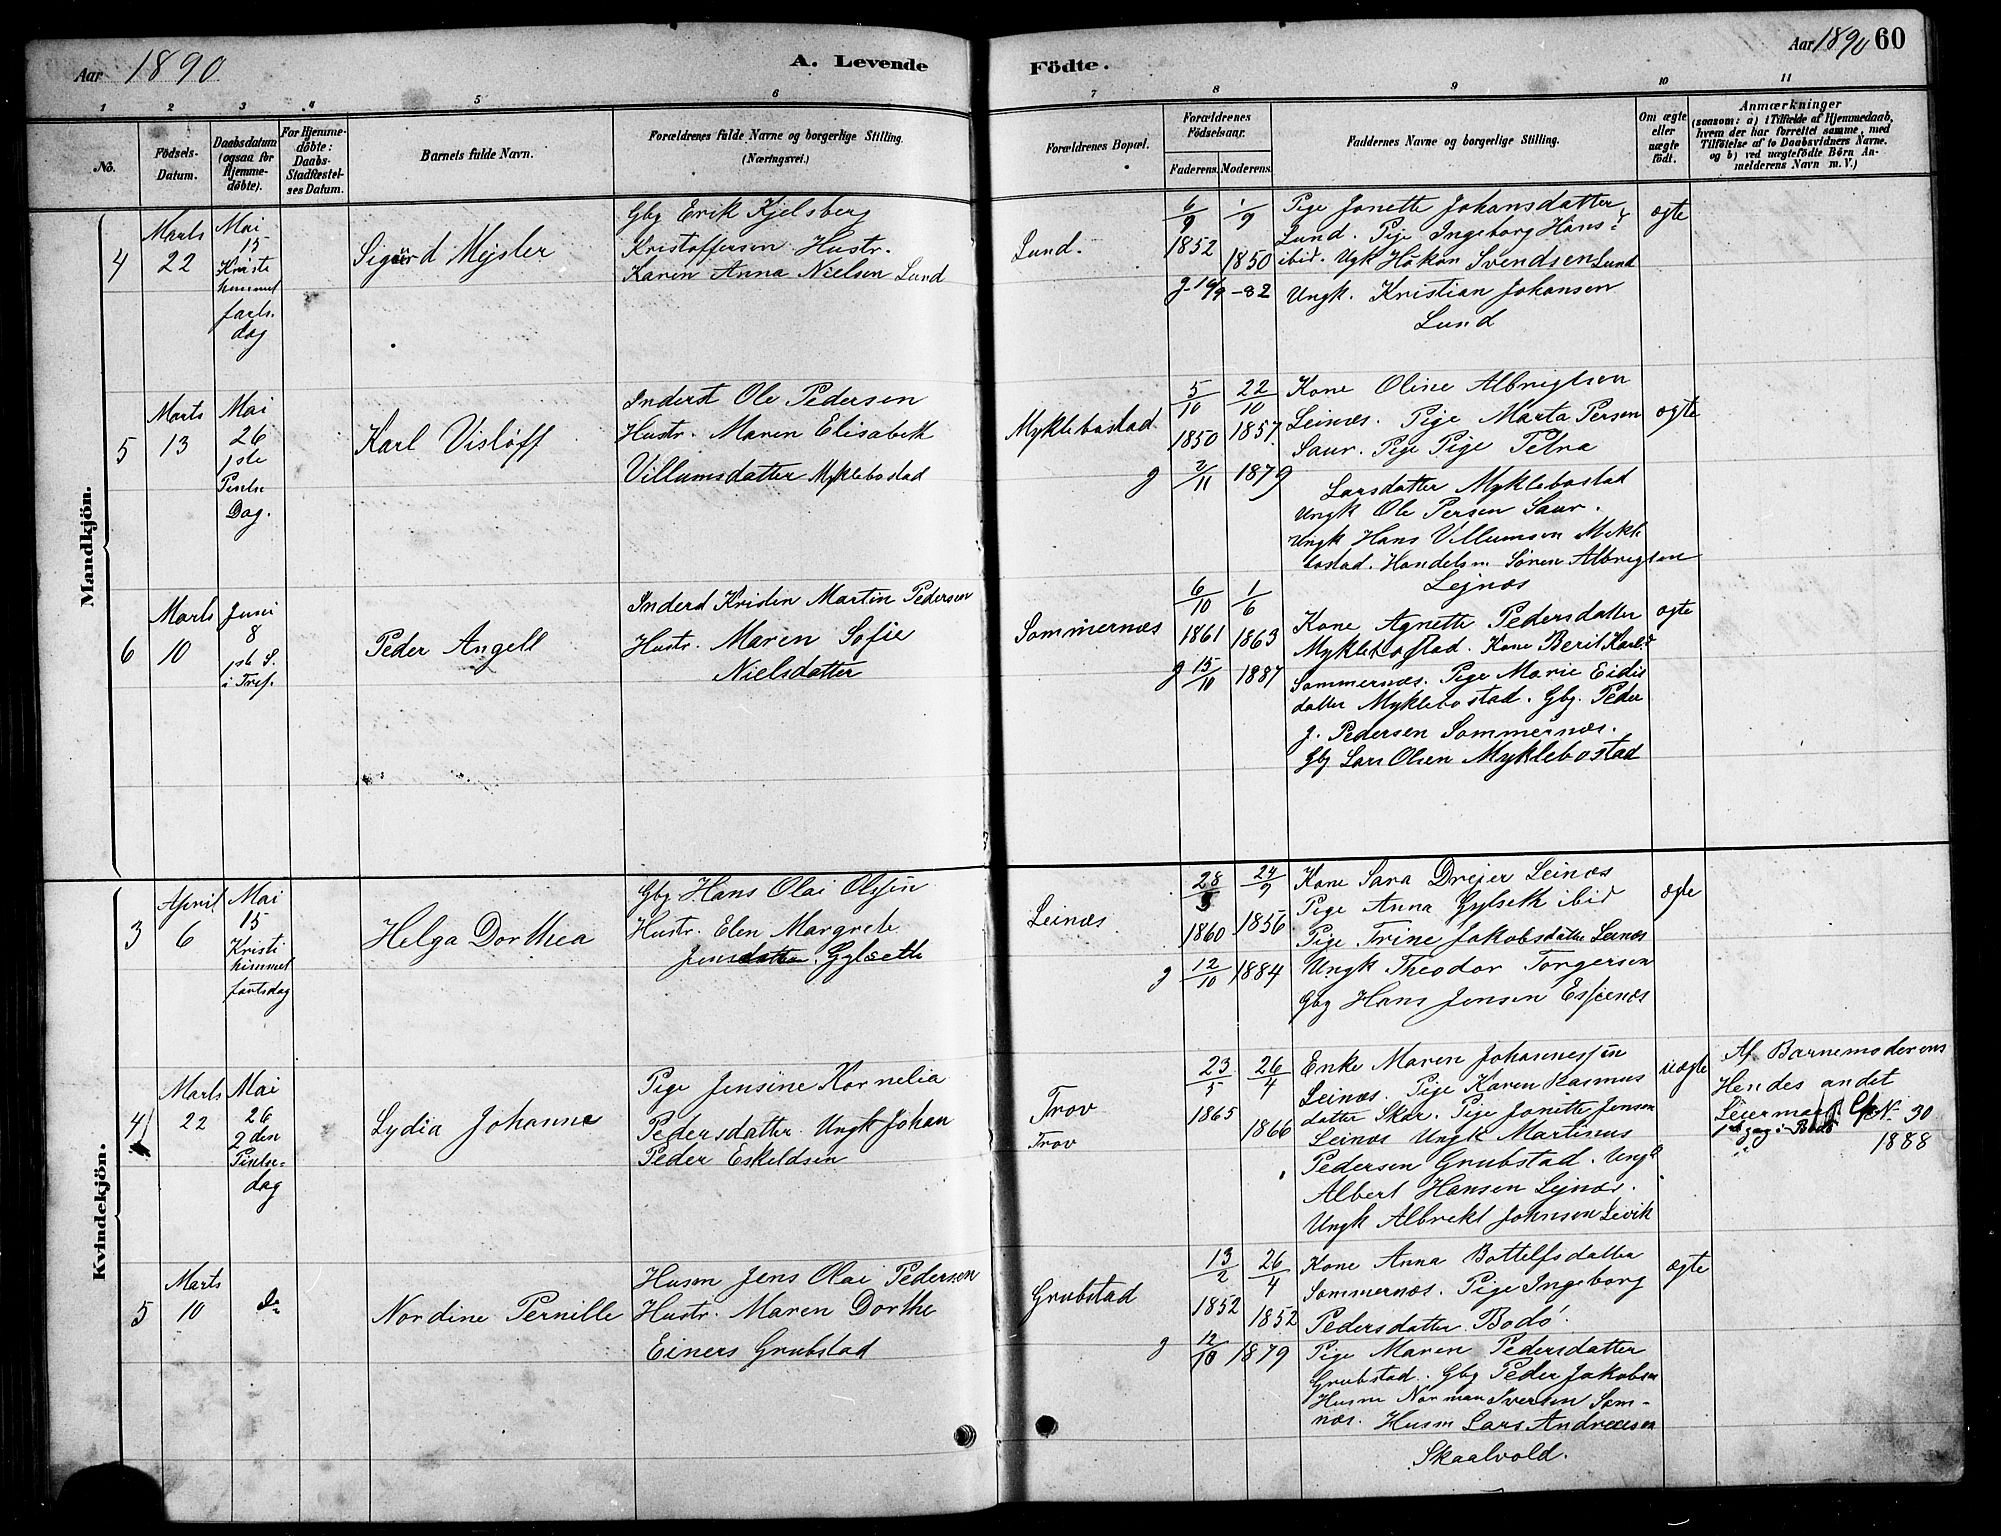 Aar 1890
A. Levende
Födte.
Aar 1890 60
1 2 3 4 5 6 7 8 9 10 11
No.
Födsels-
Datum.
Daabsdatum
(ogsaa for
Hjemme-
döbte).
For Hjemme-
döbte:
Daabs-
Stadfæstel-
ses Datum.
Barnets fulde Navn.
Forældrenes fulde Navne og borgerlige Stilling.
(Næringsvei.)
Forældrenes Bopæl.
Forældrenes
Födselsaar.
Faderens. Moderens.
Faddernes Navne og borgerlige Stilling.
Om ægte
eller
uægte
födt.
Anmærkninger
(saasom: a) i Tilfælde af Hjemmedaab,
hvem der har forrettet samme, med
Tilföielse af to Daabsvidners Navne.
og b) ved uægtefödte Börn An-
melderens Navn m. V.)
Mandkjön.
4
Marts
22
Mai
15
Kristi
himmel
farts.
dag
Sigurd Mejsler
Gbg Erik Kjelsberg
Kristoffersen Hustr.
Karen Anna Nielsen Lund
Lund.
6/9
1852
1/9
1850
g. 10/9 -82
Pige Jonette Johansdatter
Lund. Pige Ingeborg Hans-
ibid. Ugk Håkon Svendsen Lund
Ungk. Kristian Johansen
Lund
ægte
5
Marts
13
Mai
26
1ste
Pintse
Dag.
Karl Visløff
Inderst Ole Pedersen
Hustr. Maren Elisabeth
Villumsdatter Myklebostad
Myklebostad
5/10
1850
22/10
1857
g 2/11 1879
Kone Oline Albrigtsen
Leinæs. Pige Marta Persen
Saur. Pige Pige Petra
Larsdatter Myklebostad
Ungk Ole Persen Saur.
Ungk Hans Villumsen Mykle
bostad. Handelsm. Sören Albrigtsen
Lejnæs
ægte
6
Marts
10
Juni
8
1ste S.
i Tref.
Peder Angell
Inderst Kristin Martin Pedersen
Hustr. Maren Sofie
Nielsdatter
Sommernæs
6/10
1861
1/6
1863
g 15/10 1887
Kone Agnette Pedersdatter
Myklebostad. Kone Berit Karlsd
Sommernæs. Pige Marie Eidis
datter Myklebostad. Gbg. Peder
J. Pedersen Sommernæs.
Gbg Lars Olsen Myklebostad
ægte
Kvindekjön.
3
April
6
Mai
15
Kristi
himmel
fartsdag
Helga Dorthea
Gbg Hans Olai Olssen
Hustr. Elen Margrete
Jensdatter Gylseth
Leinæs
28/5
1860
24/9
1856
g 12/10 1884
Kone Sara Drejer Leinæs
Pige Anna Gylseth ibid
Pige Trine Jakobsdatter Leinæs
Ungk Theodor Torgersen
Gbg Hans Jensen Esjenæs
ægte
4
Marts
22
Mai
26
2den
Pintse-
dag
Lydia Johanna
Pige Jensine Kornelia
Pedersdatter. Ungk Johan
Peder Eskeldsen
Trov
Trov
23/5
1865
26/4
1866
Enke Maren Johannessen
Leinæs. Pige Karen Rasmus
datter Skar. Pige Jonette Jensen
Leinæs Ungk Martinus
Pedersen Grubstad. Ungk
Albert Hansen Lejnæs.
Ungk Albrekt Johnsen Leivik
uægte
Af Barnemoderens
Hendes andet
Leiermaal. Cfr N. 30
1ste gag i Bodö 1888
5
Marts
10
do
Nordine Pernille
Husm Jens Olai Pedersen
Hustr. Maren Dorthe
Einers Grubstad
Grubstad
13/2
1852
26/4
1852
g 12/10 1879
Kone Anna Bottelfsdatter
Sommernæs. Pige Ingeborg
Pedersdatter. Bodö.
Pige Maren Pedersdatter
Grubstad. Gbg Peder Jakobsen
Husm Norman Iversen Som-
næs. Husm Lars Andreesen
Skaalvold.
ægte